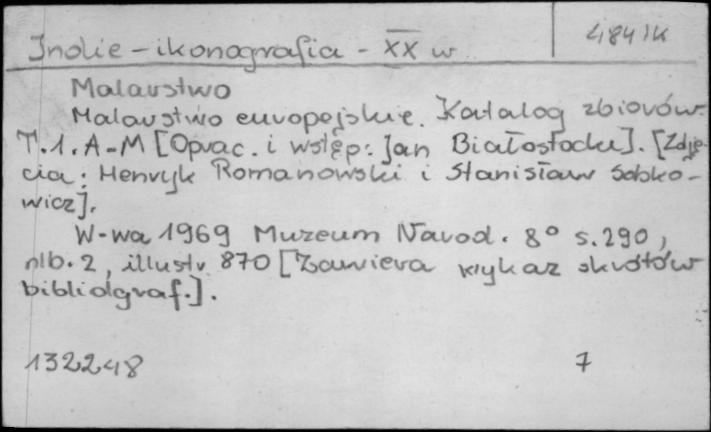 Indie - ikonografia - XX w
484/K
Malarstwo
Malarstwo europejskie. Katalog zbiorów.
T.1. A-M [Oprac. i wstęp: Jan Białostocki]. [Zdję-
cia: Henryk Romanowski i Stanisław Sobko-
wicz].
W-wa 1969 Muzeum Narod. 8° s. 290,
nlb. 2, illustr 870 [Zawiera wykaz skrótów
bibliograf.].
132248
7